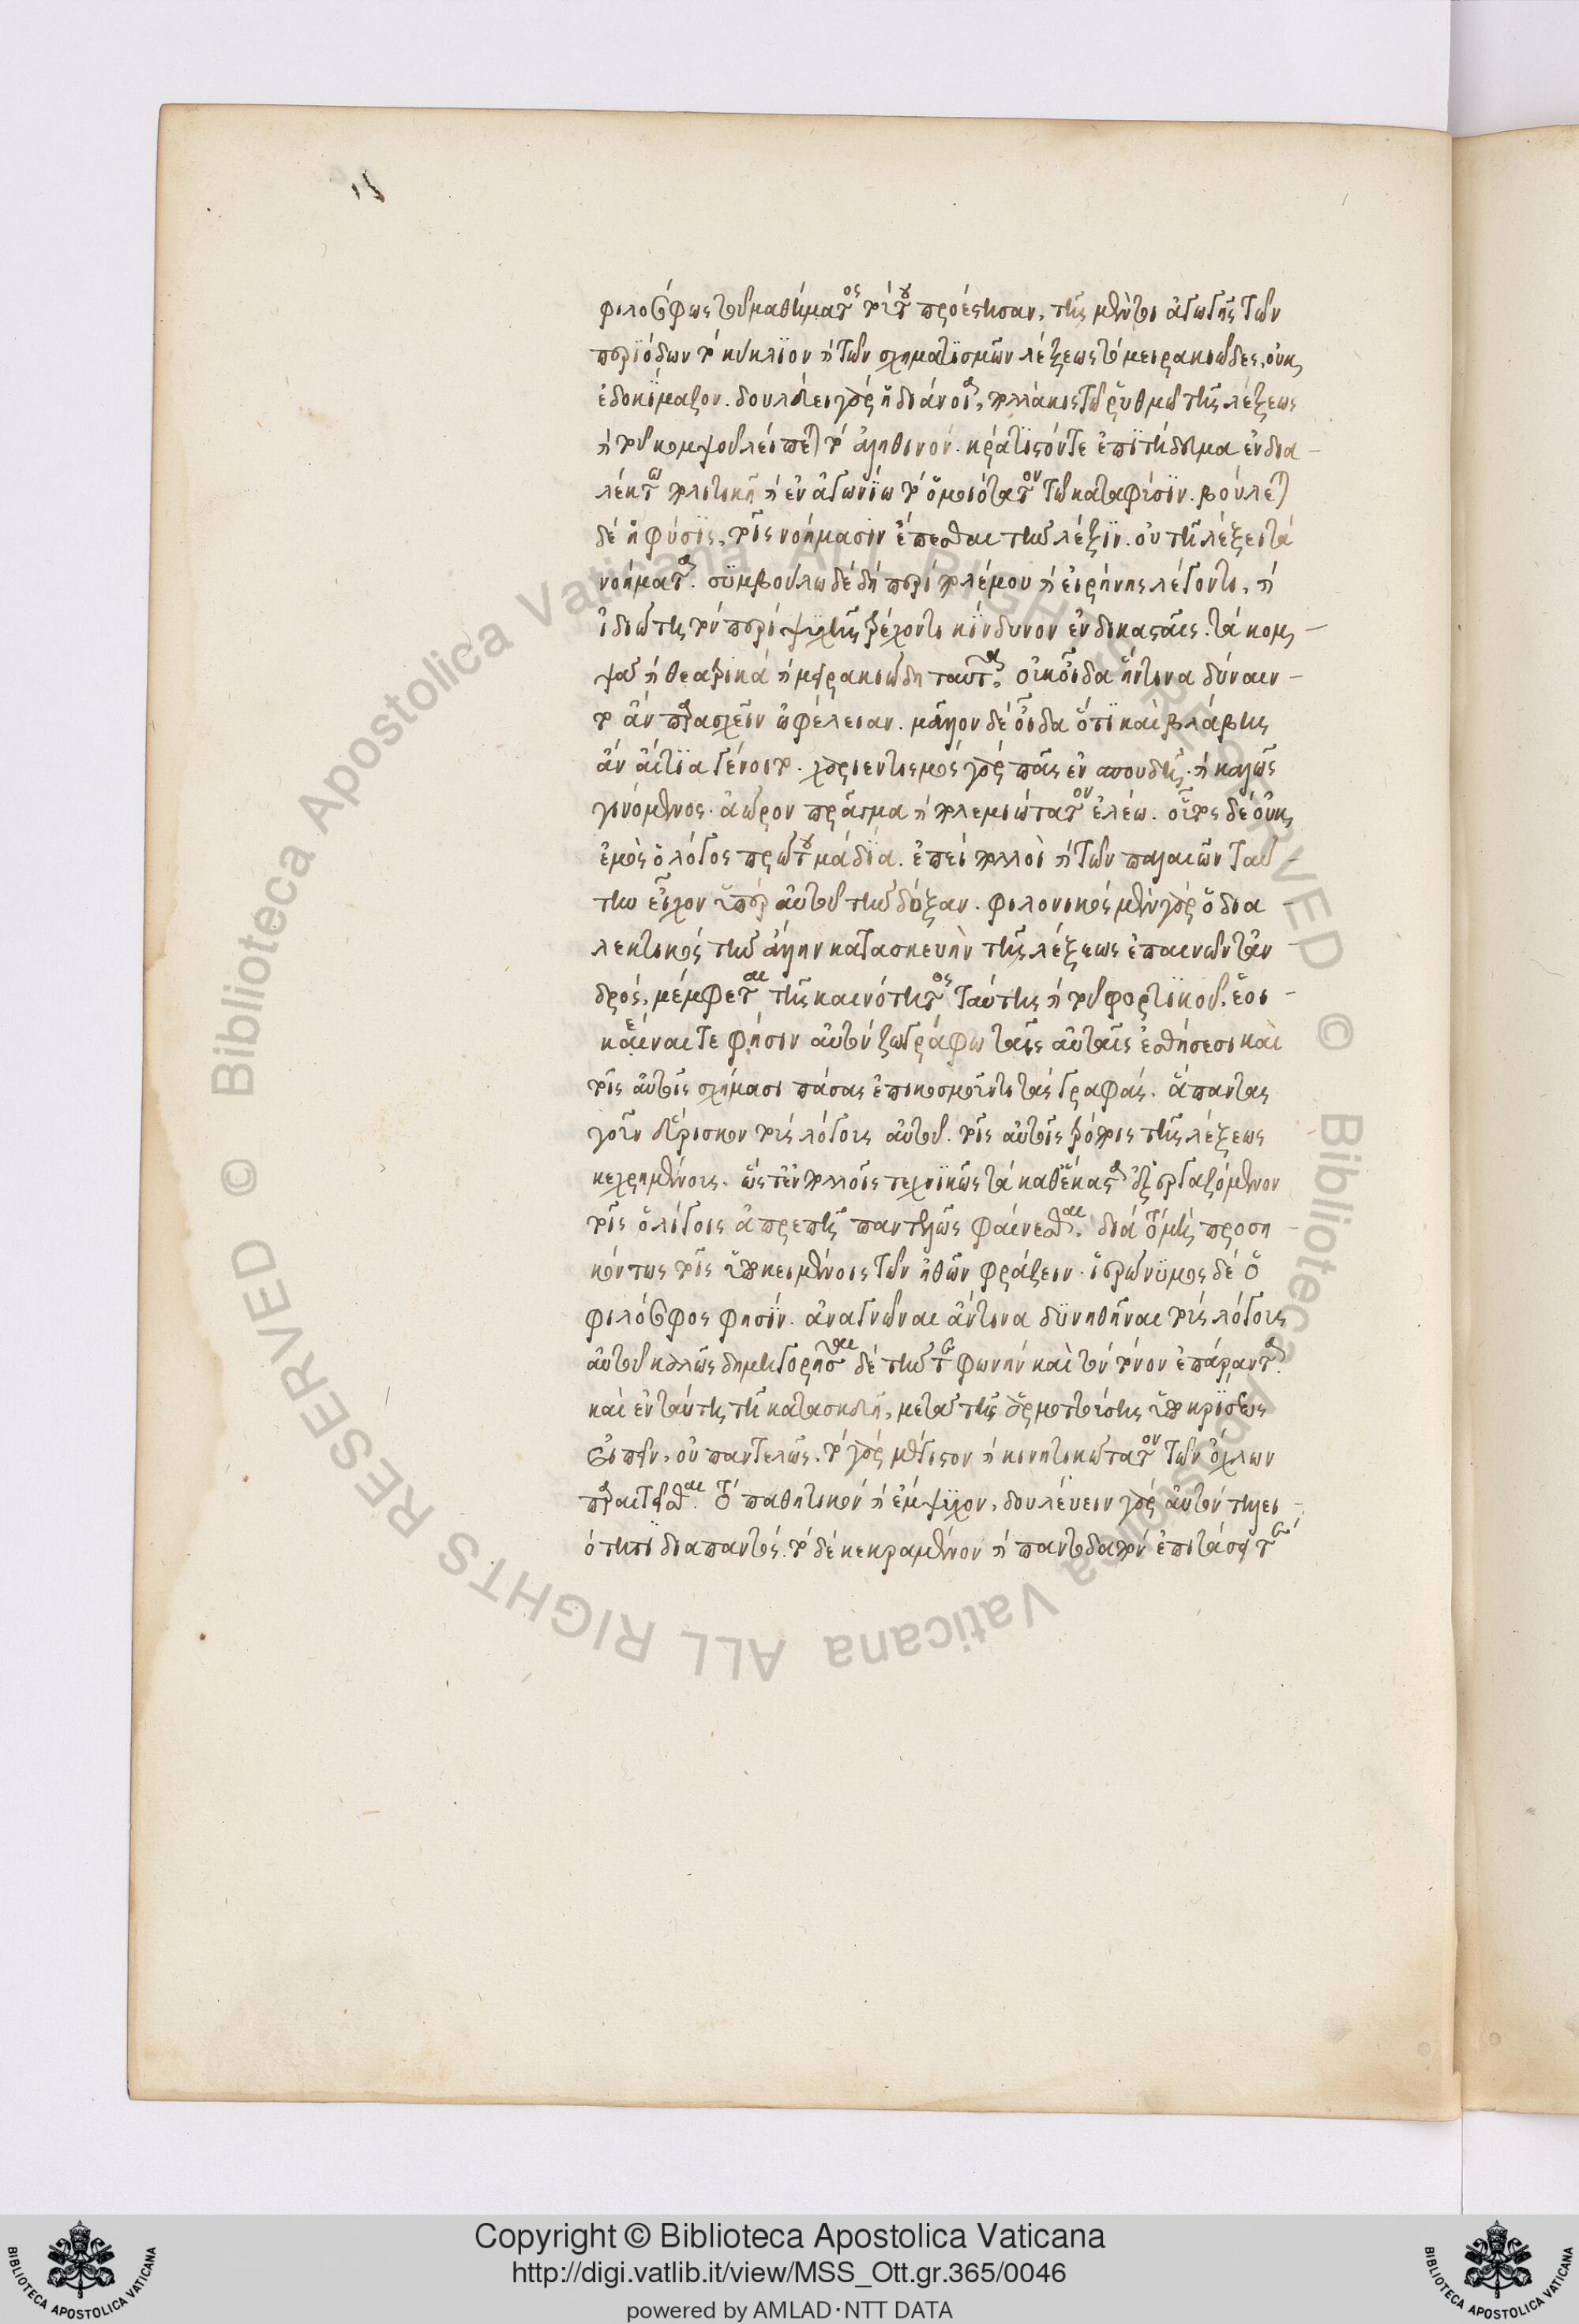 ιζ
φιλοσόφως τοῦ μαθήματος τούτου προέστησαν, τῆς μέντοι ἀγωγῆς τῶν
περιόδων τὸ κύκλιον καὶ τῶν σχηματισμῶν λέξεως τὸ μειρακιῶδες, οὐκ
ἐδοκίμαζον. δουλεύει γὰρ ἡ διάνοια πολλάκις τῷ ῥυθμῷ τῆς λέξεως
καὶ τοῦ κομψοῦ λείπεται τὸ ἀληθινόν. κράτιστόν τε ἐπιτήδευμα ἐν δια-
λέκτω πολιτικῆ καὶ ἐν ἀγωνίω τὸ ὁμοιότατον τῶ κατα φύσιν. βούλεται
δὲ ἡ φύσις, τοῖς νοήμασιν ἕπεσθαι τὴν λέξιν. οὐ τῆ λέξει τὰ
νοήματα. συμβούλω δὲ δὴ περὶ πολέμου καὶ εἰρήνης λέγοντι, καὶ
ἰδιώτη τὸν περὶ ψυχῆς τρέχοντι κίνδυνον ἐν δικασταῖς. τὰ κομ-
ψὰ καὶ θεατρικὰ καὶ μειρακιώδη ταῦτα, οὐκ οἶδα ἥντινα δύναιν-
το ἂν παρασχεῖν ὠφέλειαν. μᾶλλον δὲ οἶδα ὅτι καὶ βλάβης
ἂν αἰτία γένοιτο. χαριεντισμὸς γὰρ πᾶς ἐν σπουδῆ. καὶ κακῶς
γινόμενος. ἄωρον πρᾶγμα καὶ πολεμιώτατον ἐλέω. οὗτος δὲ οὐκ
ἐμὸς ὁ λόγος πρώτου μὰ δία. ἐπεὶ πολλοὶ καὶ τῶν παλαιῶν ταύ-
την εἶχον ὑπὲρ αὐτοῦ τὴν δόξαν. φιλόνικος μὲν γὰρ ὁ δια-
λεκτικὸς τὴν ἄλλην κατασκευὴν τῆς λέξεως ἐπαινῶν τἀν-
δρός, μέμφεται τῆς καινότητος ταύτης καὶ τοῦ φορτικοῦ. ἐοι-
κέναι τε φησιν αὐτὸν ζωγράφω ταῖς αὐταῖς ἐσθήσεσι καὶ
τοῖς αὐτοῖς σχήμασι πάσας ἐπικοσμοῦντι τὰς γραφάς. ἅπαντας
γοῦν εὕρισκον τοὺς λόγους αὐτοῦ. τοῖς αὐτοῖς τρόποις τῆς λέξεως
κεχρημένους. ὥστ' ἐν πολλοῖς τεχνικῶς τὰ καθ' ἕκαστα ἐξεργαζόμενον
τοῖς ὅλοις ἀπρεπῆ παντελῶς φαίνεσθαι. διὰ τὸ μὴ προση-
κόντως τοῖς ὑποκειμένοις τῶν ἠθῶν φράζειν. ἱερώνυμος δὲ ὁ
φιλόσοφος φησίν. ἀναγνῶναι ἄν τινα δυνηθῆναι τοὺς λόγους
αὐτοῦ καλῶς δημηγορῆσαι δὲ τήν τε φωνὴν καὶ τὸν τόνον ἐπάραντα
καὶ ἐν ταύτη τῆ κατασκευῆ, μετὰ τῆς ἁρμοττούσης ὑποκρίσεως
εἰπεῖν, οὐ παντελῶς. τὸ γὰρ μέγιστον καὶ κινητικώτατον τῶν ὄχλων
παραιτεῖσθαι. τὸ παθητικὸν καὶ ἔμψυχον. δουλεύειν γὰρ αὐτὸν τῆ λει-
ότητι διαπαντός. τὸ δὲ κεκραμένον καὶ παντοδαπὸν ἐπιτάσει τε
Copyright © Biblioteca Apostolica Vaticana
http://digi.vatlib.it/view/MSS_Ott.gr.365/0046
powered by AMLAD·NTT DATA